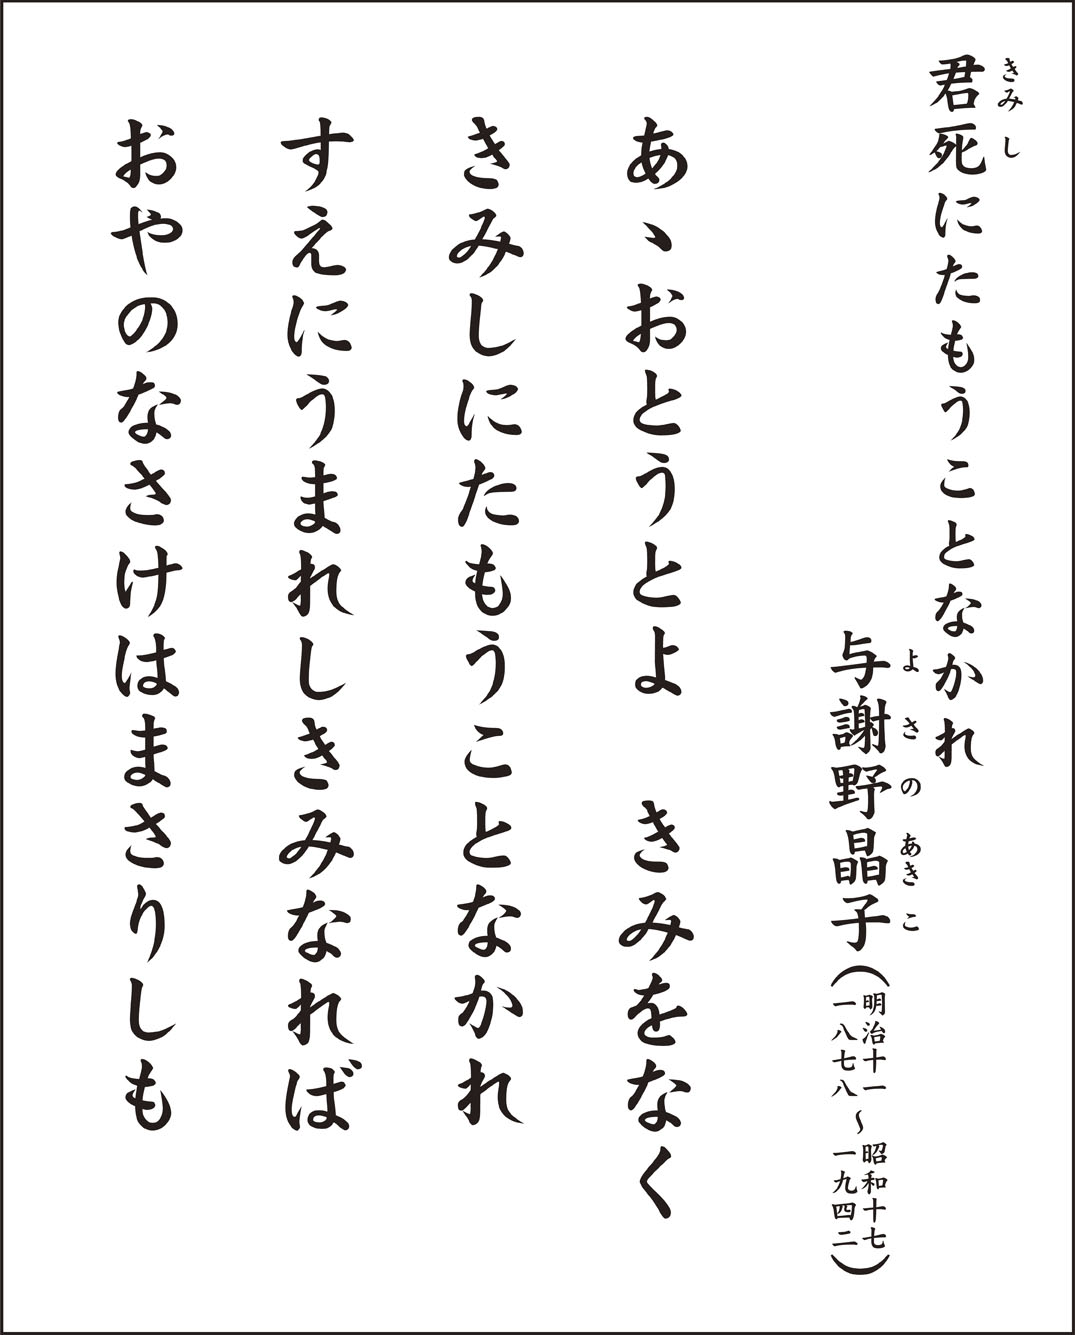 君死にたもうことなかれ
きみ し
与謝野晶子(明治十一~昭和十七 一八七八~一九四二)
よさのあきこ
あゝおとうとよ　きみをなく
きみしにたもうことなかれ
すえにうまれしきみなれば
おやのなさけはまさりしも